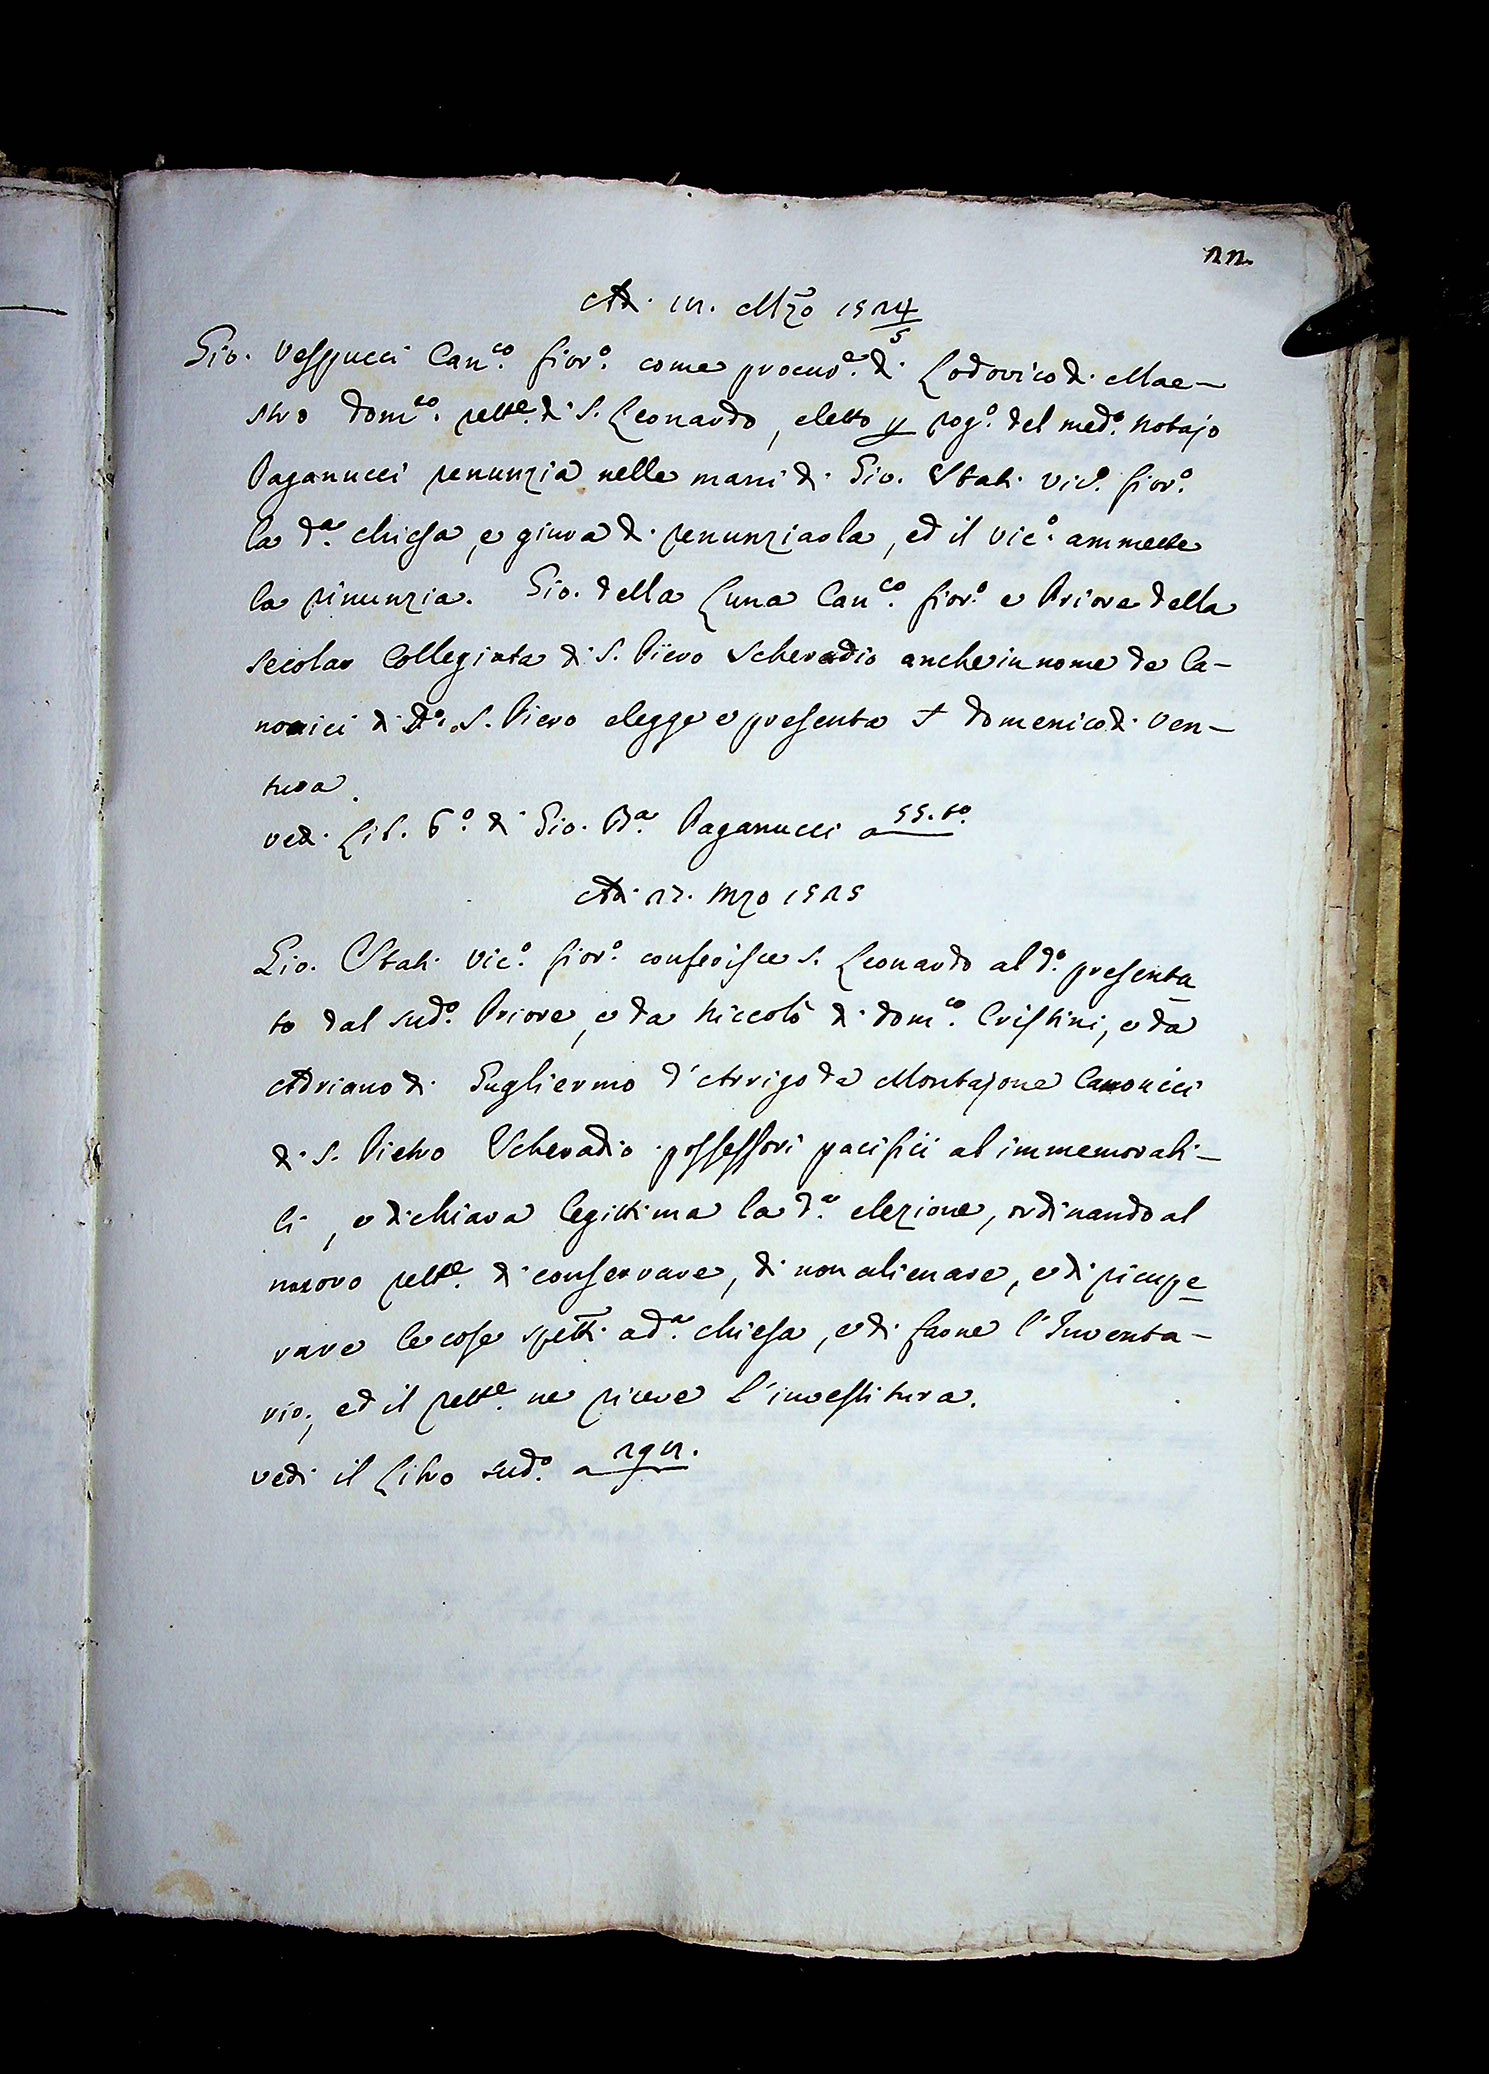 22.
Adi 12. Mzo 1524/5
Gio. Vespucci Can.co fior.o come procur.e di Lodovico di Mae-
stro Dom.co rett.e di S. Leonardo, eletto p rog.o del med.o Notajo
Paganucci renunzia nelle mani di Gio. Stati Vic.o fior.o
la d.a chiesa, e giura di renunziarla, ed il Vic.o ammette
la rinunzia. Gio. della Luna Can.co fior.o e Priore della
secolar Collegiata di S. Piero Scheradio anche in nome de Ca-
nonici di D.o S. Piero elegge e presenta + Domenico di Ven-
tura.
vedi Lib. 6.o di Gio. B.a Paganucci a 55. t.o
Adi 27. Mzo 1525
Gio. Stati Vic.o fior.o conferisce S. Leonardo al d.o presenta
to dal sud.o Priore, e da Niccolò di Dom.co Cristini, e da
Adriano di Guglielmo d'Arrigo da Montajone Canonici
di S. Pietro Scheradio possessori pacifici ab immemorabi-
li, e dichiara legittima la d.a elezione, ordinando al
nuovo rett.e di conservare, di non alienare, e di ricupe
rare le cose spett.i a d.a chiesa, e di farne l'Inventa-
rio, ed il rett.e ne riceve l'investitura.
vedi il Libro sud.o a